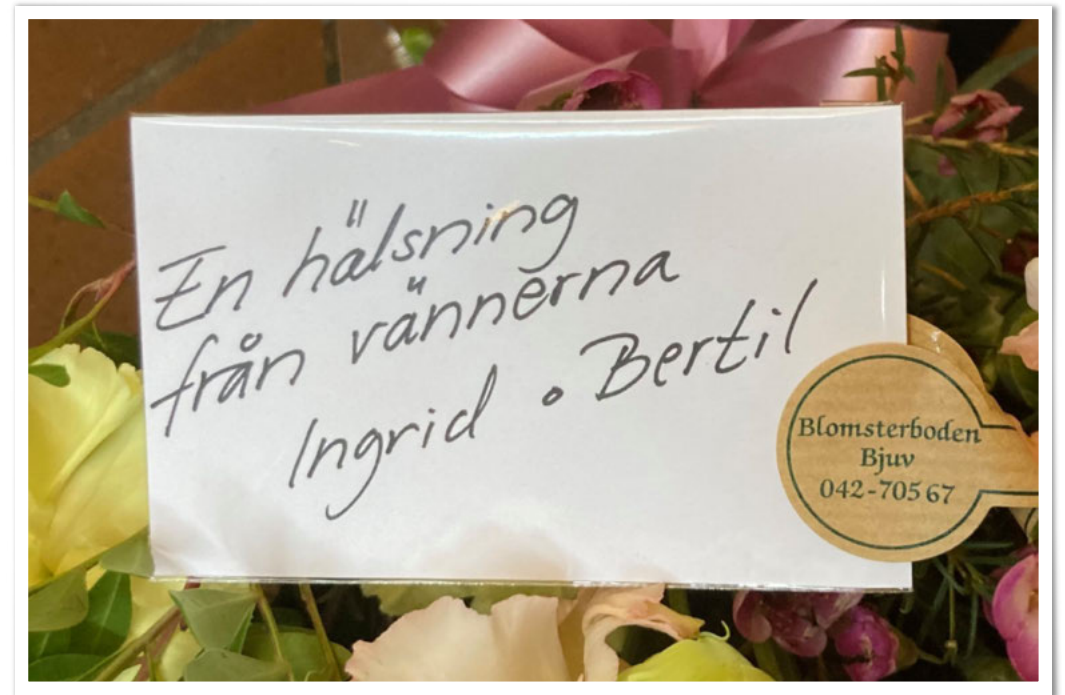 En hälsning
från vännerna
Ingrid o Bertil
Blomsterboden
Bjuv
042-705 67